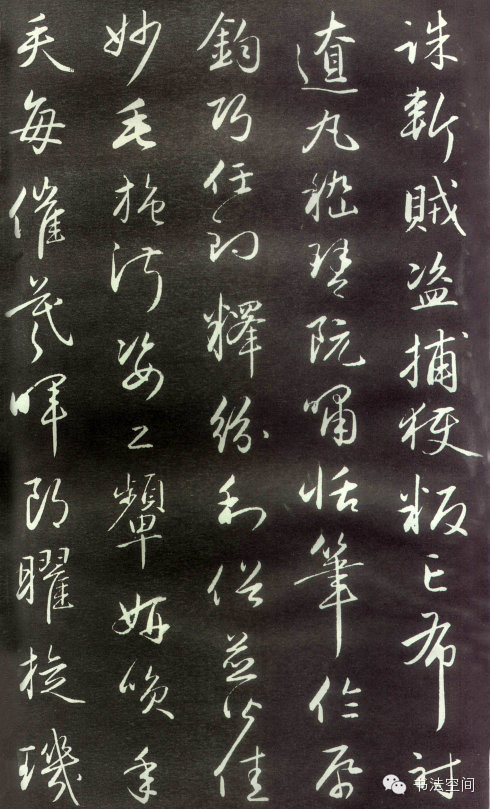 誅斬賊盜捕獲叛亡布射
遼丸嵇琴阮嘯恬筆倫紙
鈞巧任釣釋紛利俗並皆佳
妙毛施淑姿工顰妍笑年
矢每催羲暉朗曜旋璣
书法空间